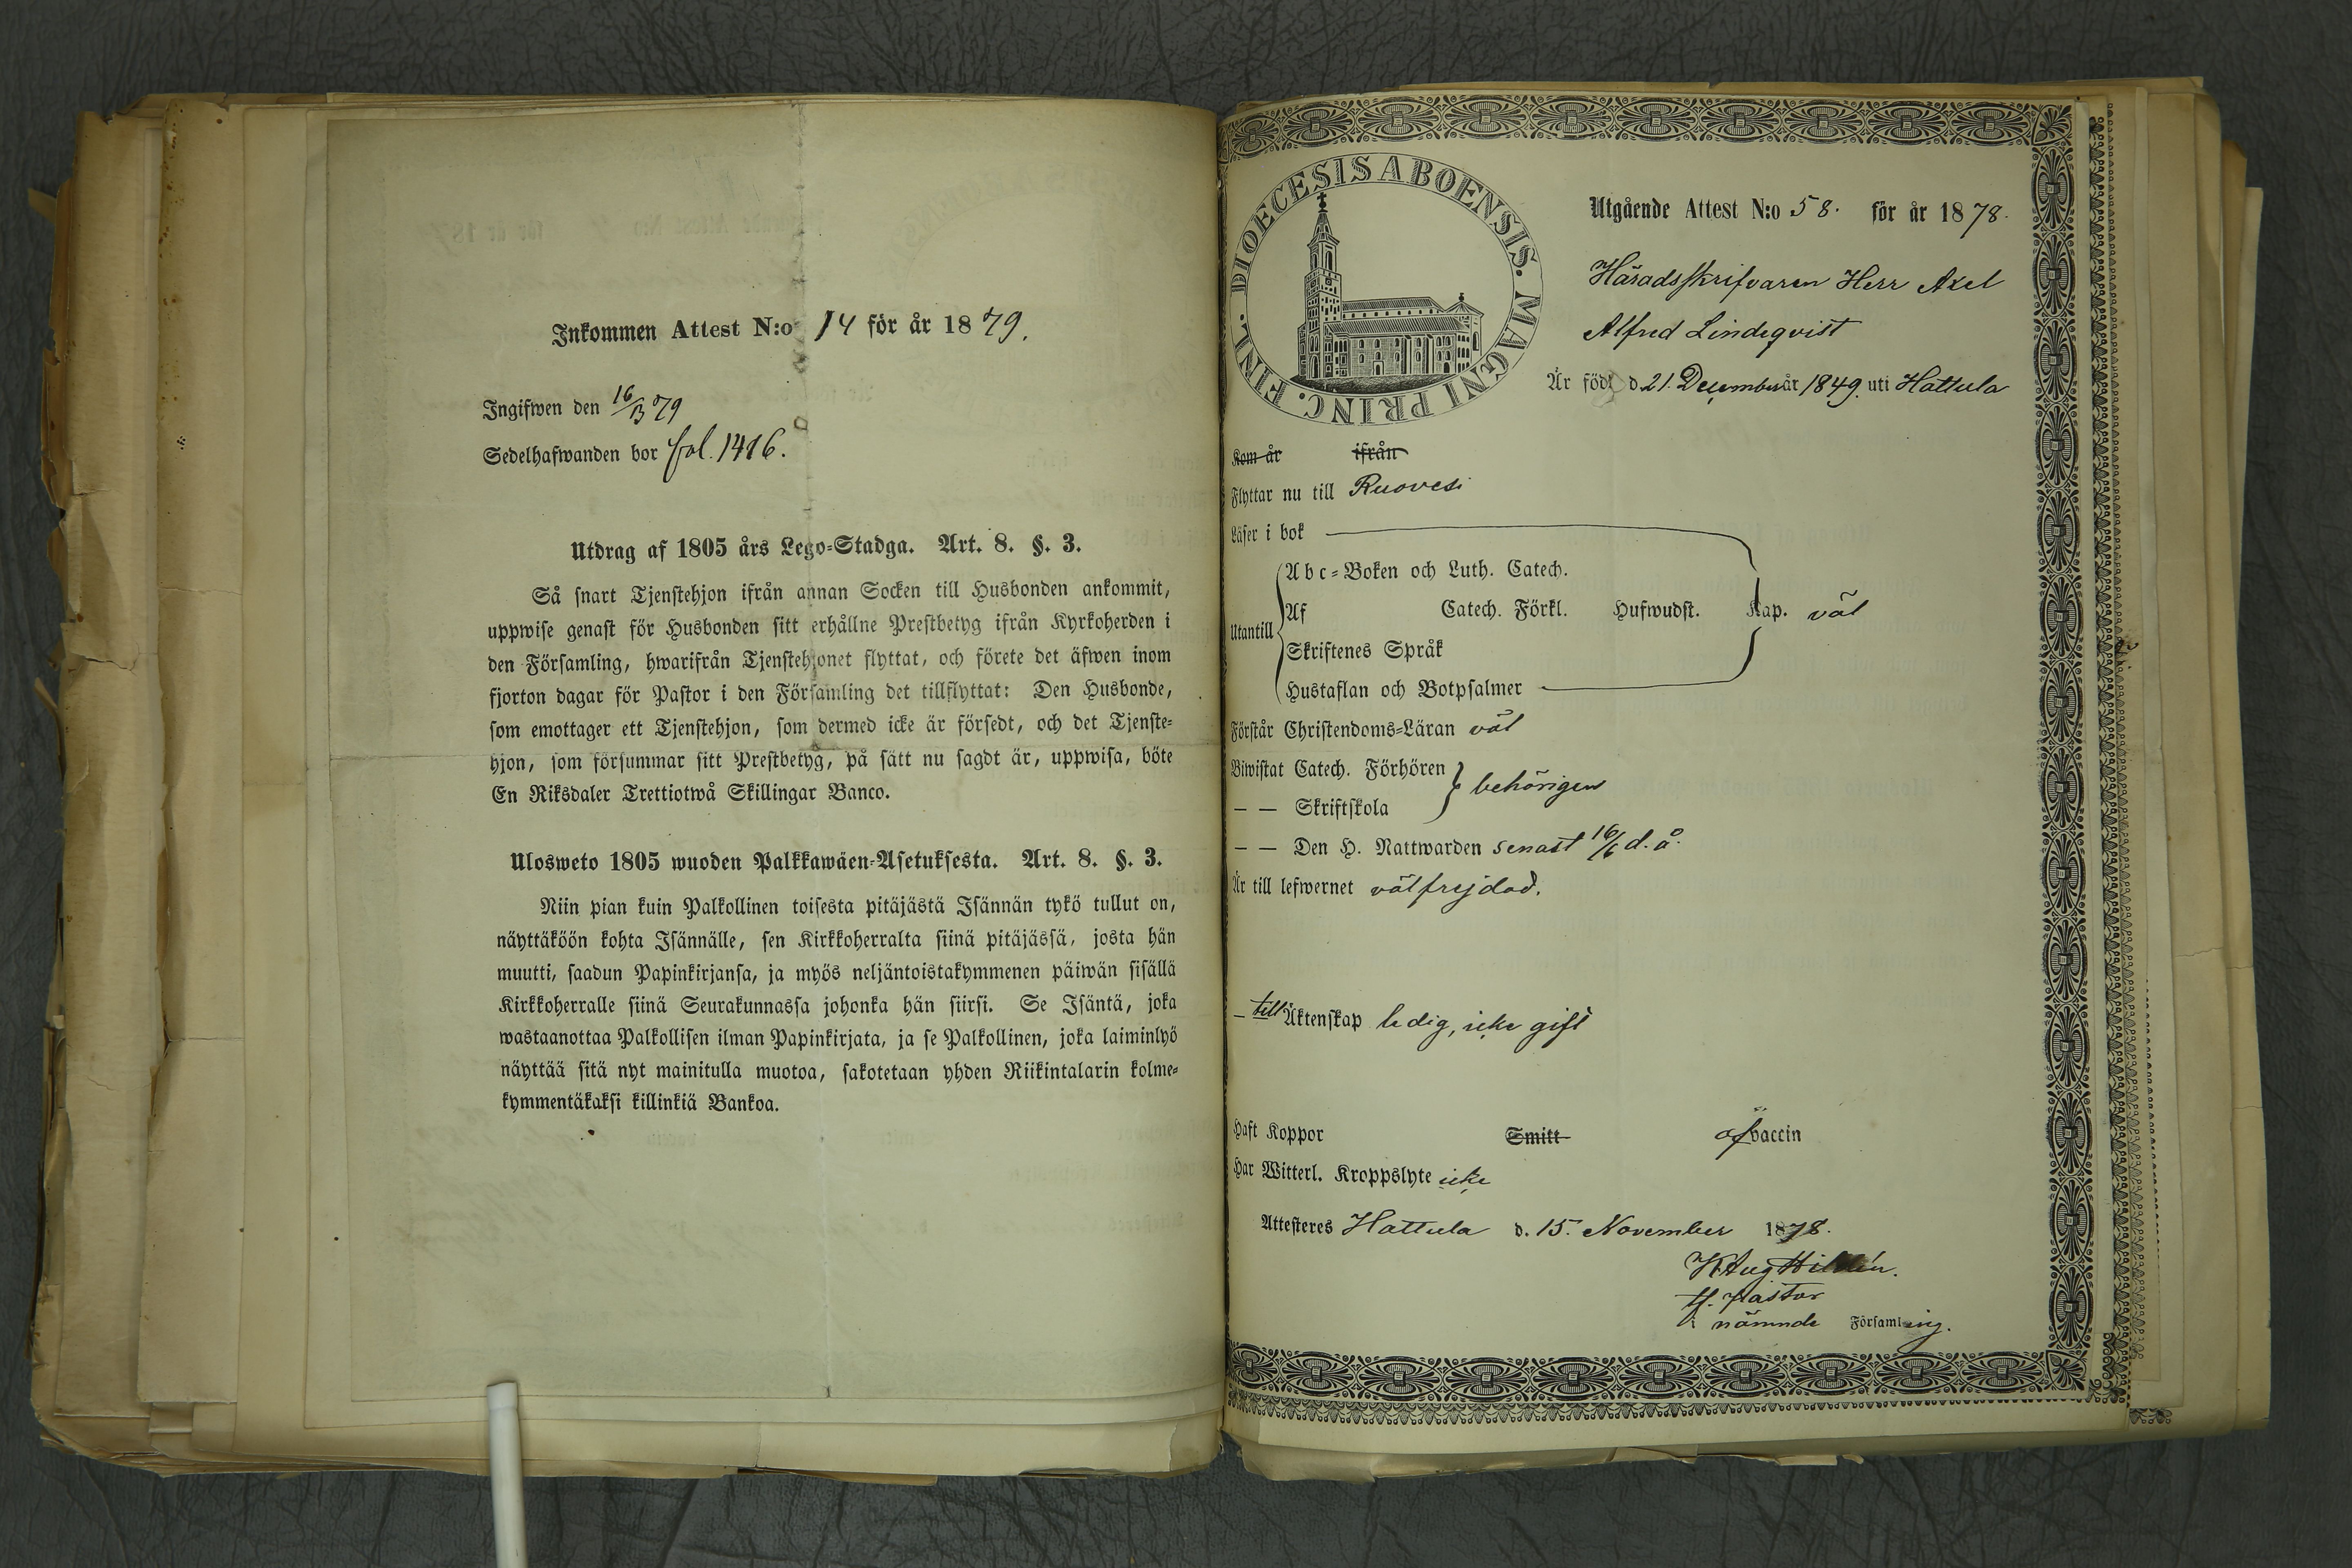 Inkommen Attest N:o 14 för år 1879.
Ingifwen den 16/3 79
Sedelhafwanden bor fol. 1416.
Utdrag af 1805 års Lego-Stadga. Art. 8. §. 3.
Så snart Tjenstehjon ifrån annan Socken till Husbonden ankommit,
uppwise genast för Husbonden sitt erhållne Prestbetyg ifrån Kyrkoherden i
den Församling, hwarifrån Tjenstehjonet flyttat, och förete det äfwen inom
fjorton dagar för Pastor i den Församling det tillflyttat: Den Husbonde,
som emottager ett Tjenstehjon, som dermed icke är försedt, och det Tjenste-
hjon, som försummar sitt Prestbetyg, på sätt nu sagdt är, uppwisa, böte
En Riksdaler Trettiotwå Skillingar Banco.
Ulosweto 1805 wuoden Palkkawäen-Asetuksesta. Art. 8. §. 3.
Niin pian kuin Palkollinen toisesta pitäjästä Isännän tykö tullut on,
näyttäköön kohta Isännälle, sen Kirkkoherralta siinä pitäjässä, josta hän
muutti, saadun Papinkirjansa, ja myös neljäntoistakymmenen päiwän sisällä
Kirkkoherralle siinä Seurakunnassa johonka hän siirsi. Se Isäntä, joka
wastaanottaa Palkollisen ilman Papinkirjata, ja se Palkollinen, joka laiminlyö
näyttää sitä nyt mainitulla muotoa, sakotetaan yhden Riikintalarin kolme-
kymmentäkaksi killinkiä Bankoa.
DIOECESIS ABOENSIS. MAGNI PRINC. FINL.
Utgående Attest N:o 58. för år 1878.
Häradsskrifvaren Herr Axel
Alfred Lindeqvist
Är född d. 21. December år 1849. uti Hattula
Kom år ifrån
Flyttar nu till Ruovesi
Läser i bok
Utantill
Abc-Boken och Luth. Catech.
Af Catech. Förkl. Hufwudst. Kap. väl
Skriftenes Språk
Hustaflan och Botpsalmer
Förstår Christendoms-Läran väl
Biwistat Catech. Förhören
— — Skriftskola behörigen
— — Den H. Nattwarden senast 16/6 d. å.
Är till lefwernet välfrejdad.
— till Äktenskap ledig, icke gift
Haft Koppor Smitt af vaccin
Har Witterl. Kroppslyte icke
Attesteres Hattula d. 15. November 1878.
K Aug Hildén.
tf. Pastor
i nämnde Församling.